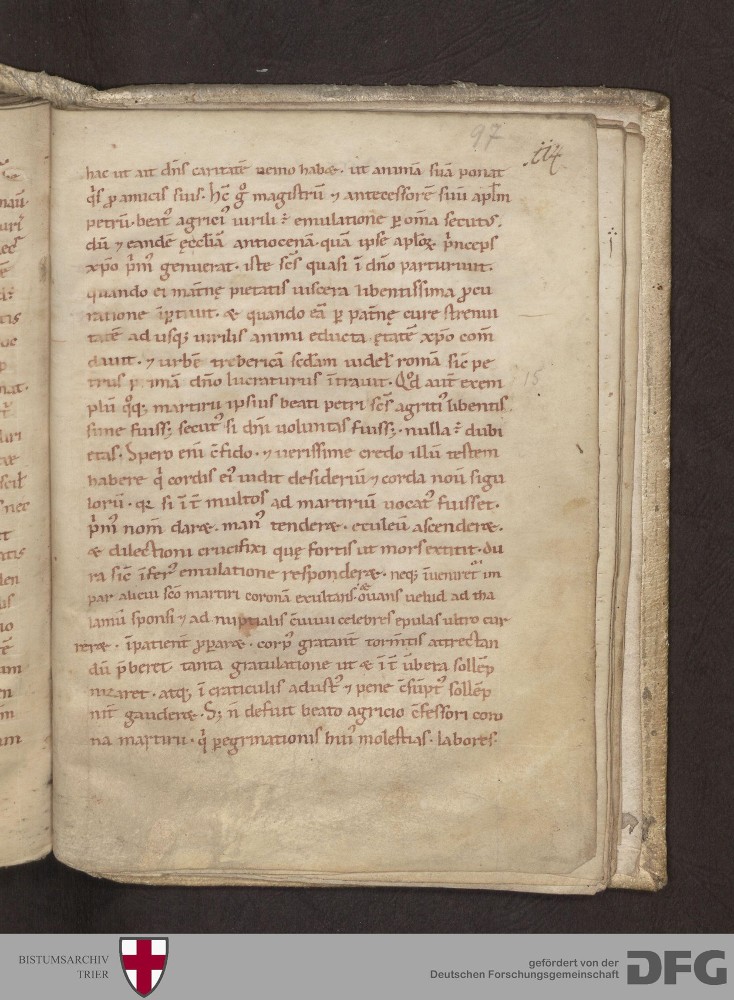 97
hac ut ait dn̄s caritatē nemo habet · ut animā suā ponat
q̇s ꝓ amicis suis · hc̄ g̊ magistrū ⁊ antecessorē suū apl̄m
petrū · beatꝰ agriciꝰ uirili emulatione ꝑ om̄a secutus ·
dū ⁊ eandē ęccl̄iā antiocenā · quā ipse apl̄oꝝ p̄nceps
xp̄o p̄mꝰ genuerat · iste sc̄s quasi ī dn̄o parturiuit ·
quando ei mat̄nę pietatis uiscera libentissima ꝓcu
ratione īꝑtiuit · & quando eā ꝑ pat̄nę cure strenui
tatē ad usqꝫ uirilis animi educta ętatē xp̄o com̄
dauit · ⁊ urbē trebericā sc̄dam uidel romā sic̄ pe
trus p̄mā dn̄o lucraturus ītrauit · Qd̄ aut̄ exem
plū q̊qꝫ martirii ipsius beati petri sc̄s agritiꝰ libentis
sime fuissꝫ secutꝰ si dn̄i uoluntas fuissꝫ · nulla dubi
etas · Spero eni c̄fido · ⁊ uerissime credo illū testem
habere q̇ cordis eiꝰ uidit desideriū ⁊ corda nouit̄ sigu
lorū · si īt̄ multos ad martiriū uocatꝰ fuisset ·
p̄mꝰ nom̄ daret · manꝰ tenderet · eculeū ascenderet ·
& dilectioni crucifixi quę fortis ut mors extitit · du
ra sic̄ īferꝰ emulatione responderet · neqꝫ īueniret im
par alicui sc̄o martiri coronā exultans · ouans uelud ad tha
lamū sponsi ⁊ ad nuptialis c̄uiuii celebres epulas ultro cur
reret · īpatient̄ ꝓꝑaret · corpꝰ gratant̄ torm̄tis attrectan
dū p̄beret · tanta gratulatione ut & īt̄ ūbera sollēp
nizaret · atqꝫ ī craticulis adustꝰ ⁊ pene c̄sūptꝰ sollēp
nit̄ gauderet · Sꝫ n̄ defuit beato agricio c̄fessori coro
na martirii · q̇ ꝑegrinationis huiꝰ molestias · labores ·
15
BISTUMSARCHIV
TRIER
gefördert von der
Deutschen Forschungsgemeinschaft
DFG